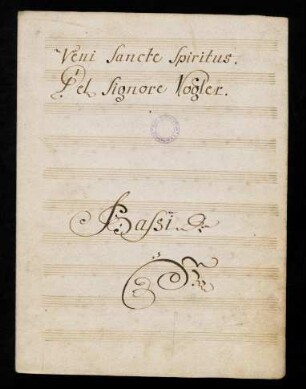 Veni Sancte Spiritus.
Del Signore Vogler.
Bassi